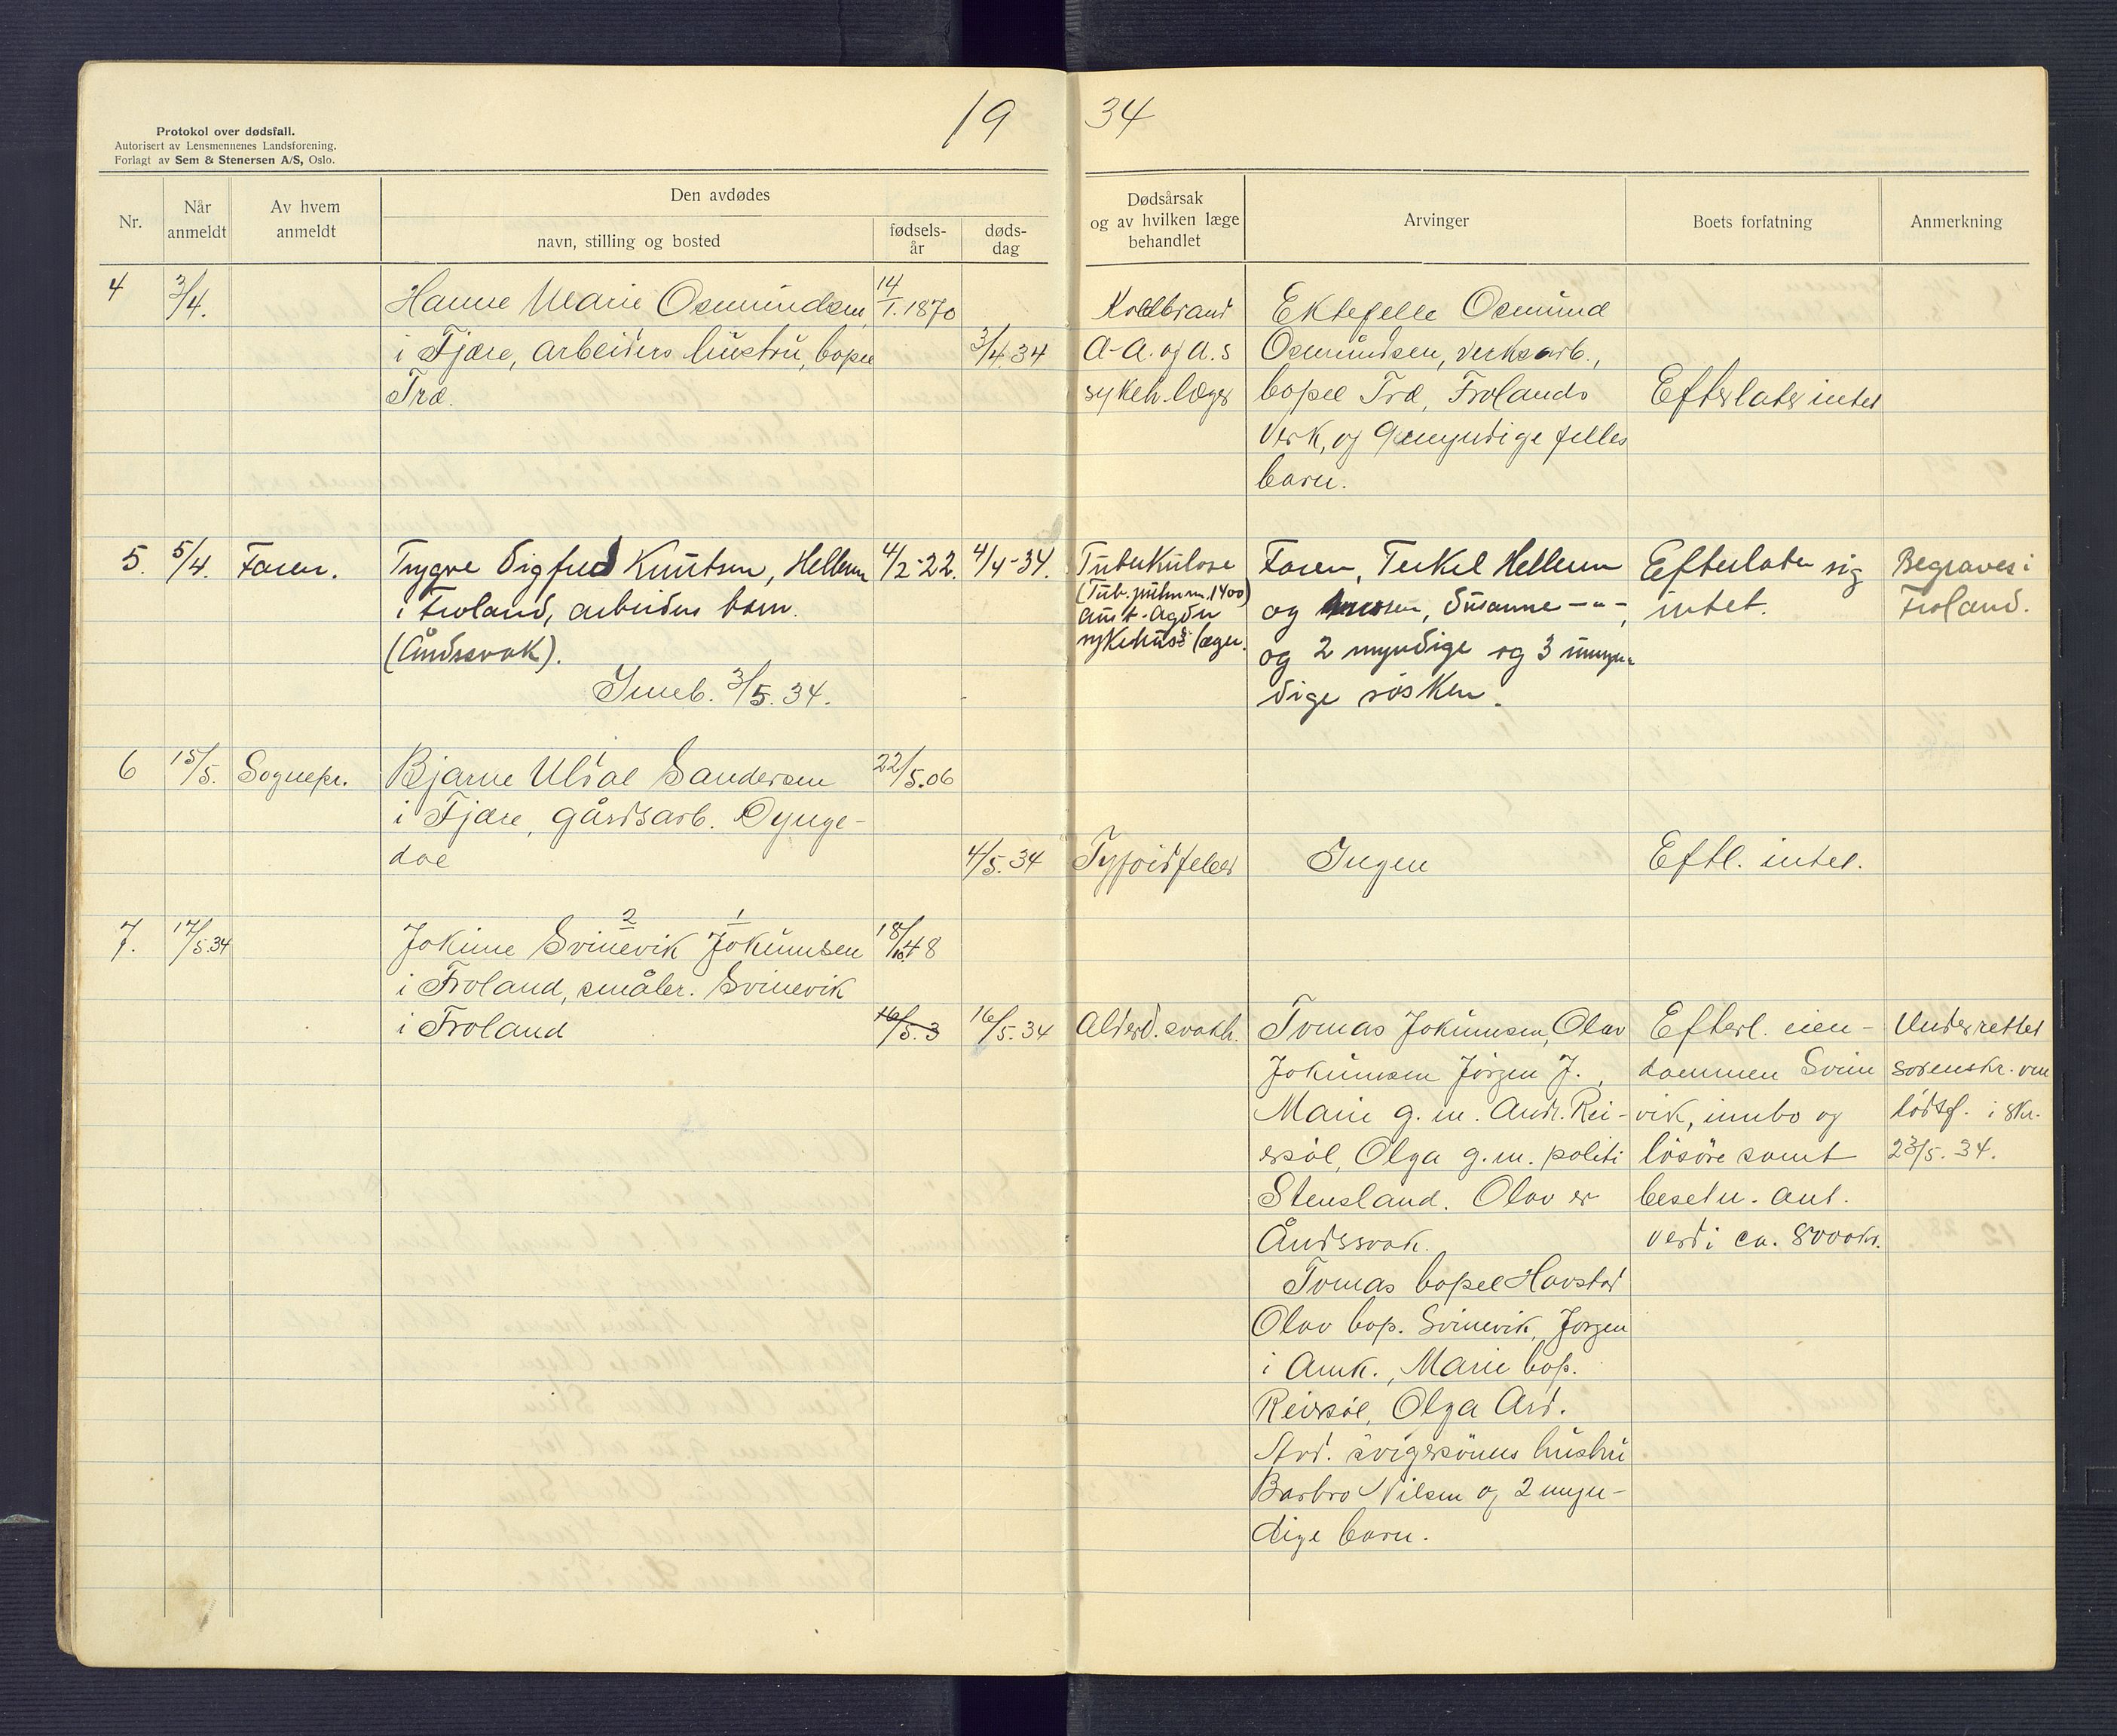 19 34
Protokol over dødsfall.
Autorisert av Lensmennenes Landsforening.
Forlagt av Sem & Stenersen A/S, Oslo.
Nr.
Når anmeldt
Av hvem anmeldt
Den avdødes
navn, stilling og bosted
fødsels-år
døds-dag
Dødsårsak
og av hvilken læge
behandlet
Arvinger
Boets forfatning
Anmerkning
4 3/4.
Hanne Marie Osmundsen
i Fjære, arbeiders hustru, bopel
Træ.
14/1.1870
3/4.34
Koldbrand
A-A. og A.s
sykeh. læger
Ektefelle Osmund
Osmundsen, verksarb.,
bopel Træ, Frolands
Verk, og 9 myndige felles
barn.
Efterlater intet
5. 5/4. Faren.
Trygve Sigfred Knutsen, Hellerum
i Froland, arbeiders barn.
(Åndssvak).
Inneb. 3/5.34.
4/2-22. 4/4-34.
Tuberkulose
(Tub. pulmm. 1400)
Aust-Agder
sykehus læger.
Faren, Terkel Hellerum
og moren, Susanne -"-,
og 2 myndige og 3 umyn-
dige søsken.
Efterlater sig
intet.
Begraves i
Froland.
6 15/5. Sognepr.
Bjarne Ulsdal Sandersen
i Fjære, gårdsarb. Dynge-
dal
22/5.06
4/5.34
Tyfoidfeber
Ingen
Eftl. intet.
7. 17/5.34
2 1
Jokine Svinevik Jokumsen
i Froland, småbr. Svinevik
i Froland
18/10.48
16/5.3 16/5.34
Alderd. svakh.
Tomas Jokumsen, Olav
Jokumsen Jørgen J.,
Marie g. m. Andr. Rei-
ersøl, Olga g.m. politi
Stensland. Olav er
Åndssvak.
Tomas bopel Havstad
Olav bop. Svinevik, Jørgen
i Amk., Marie bop.
Reiersøl, Olga Ard.
Avd. svigersønns hustru
Barbro Nilsen og 2 myn-
dige barn.
Efterl. eien-
dommen Svine
vik, innbo og
løsøre samt
besetn. Ant.
verdi ca. 8000 kr.
Underrettet
sorenskr. om
dødsf. i skr.
23/5. 34.